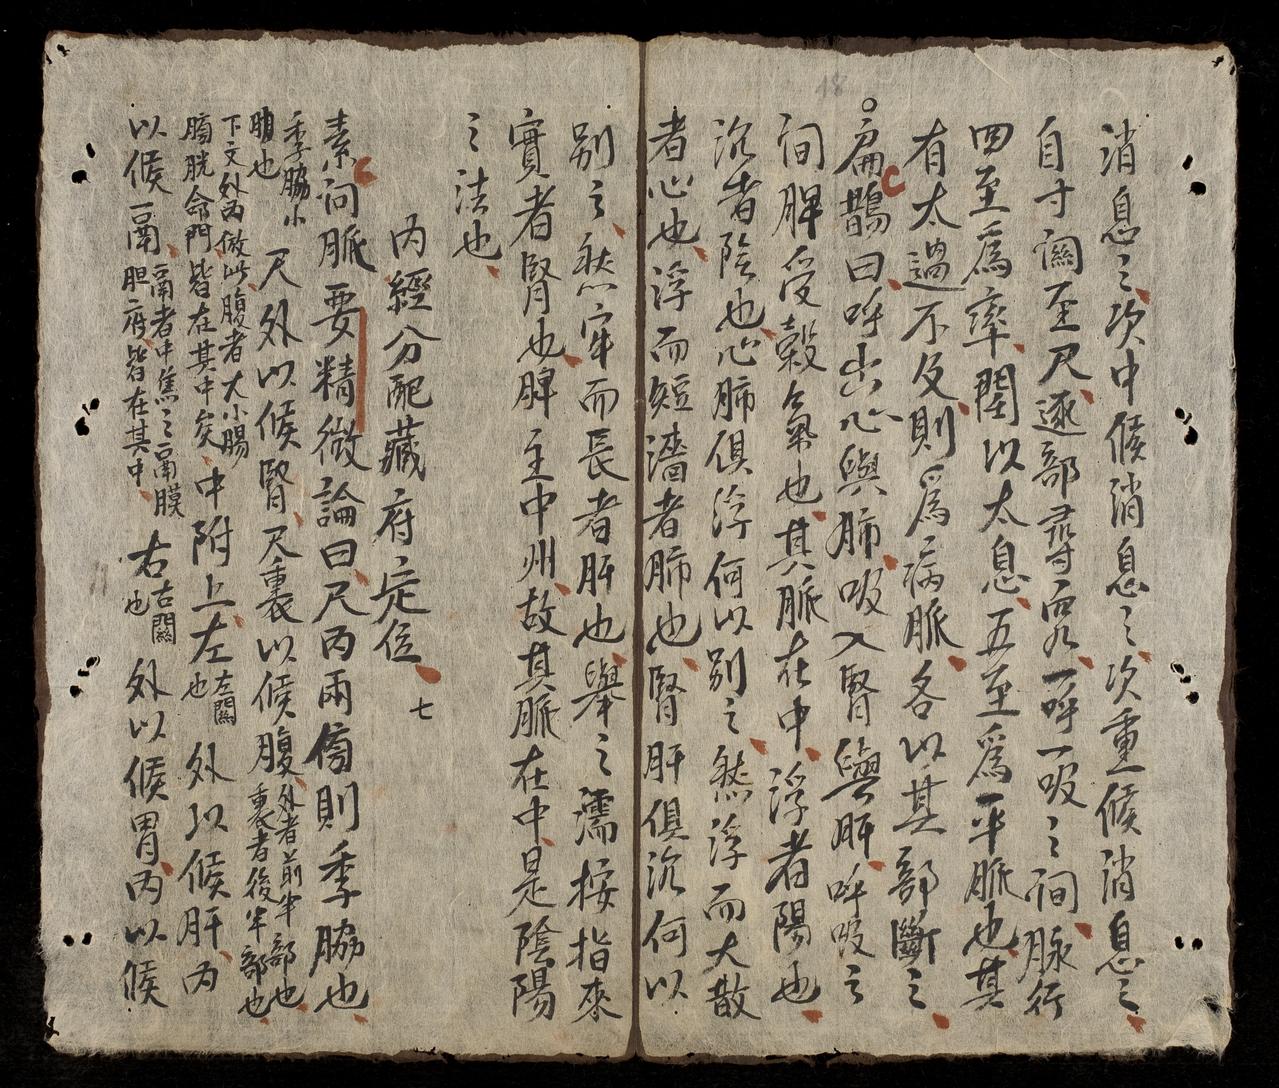 消息之次中候消息之次重候消息之
自寸關至尺逐部尋究一呼一吸之間脉行
四至爲率閏以太息五至爲平脈也其
有太過不及則爲病脈各以其部斷之
○扁鵲曰呼出心與肺吸入腎與肝呼吸之
間脾受穀氣也其脈在中浮者陽也
沉者陰也心肺俱浮何以別之然浮而大散
者心也浮而短濇者肺也腎肝俱沉何以
別之然牢而長者肝也舉之濡按指來
實者腎也脾主中州故其脈在中是陰陽
之法也
內經分配藏府定位 七
素問脈要精微論曰尺內兩傍則季脇也
季脇小
肋也
尺外以候腎尺裏以候腹
外者前半部也
裏者後半部也
下文外內倣此腹者大小腸
膀胱命門皆在其中矣
中附上左
左關
也
外以候肝內
以候鬲
鬲者中焦之鬲膜
胆府皆在其中
右
右關
也
外以候胃內以候
18